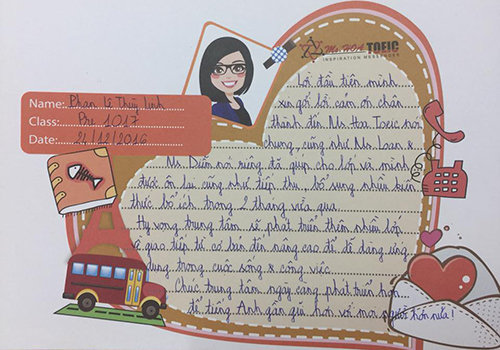 Mr. HOA TOEIC
INSPIRATION MESSENGER
Name: Phan Lê Thuỳ Linh
Class: Pre 1017
Date: 21/12/2016
Lời đầu tiên mình
xin gởi lời cám ơn chân
thành đến Mr Hoa Toeic nói
chung, cũng như Ms. Loan &
Ms Diễm nói riêng đã giúp cho lớp và mình
được ôn lại cũng như tiếp thu, bổ sung nhiều kiến
thức bổ ích trong 2 tháng vừa qua.
Hy vọng trung tâm sẽ phát triển thêm nhiều lớp
về giao tiếp từ cơ bản đến nâng cao để dễ dàng ứng
dụng trong cuộc sống & công việc.
Chúc trung tâm ngày càng phát triển hơn...
để tiếng Anh gần gũi hơn với mọi người hơn nữa!